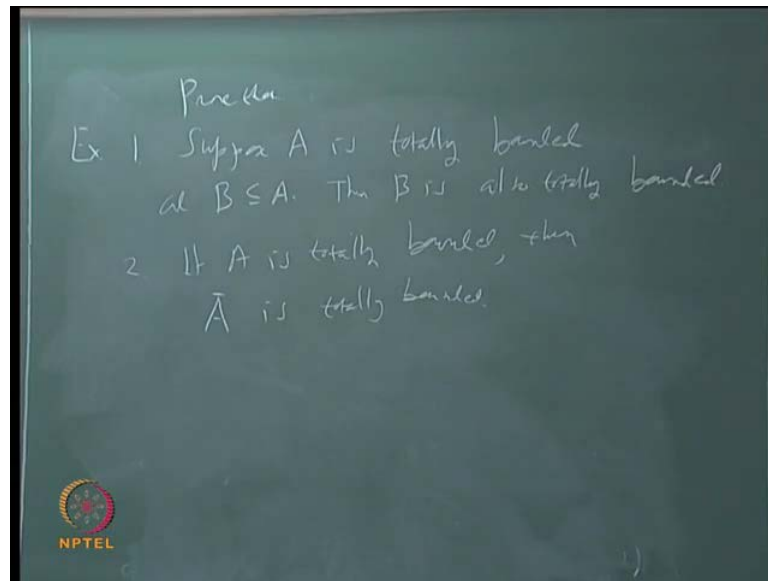 Prove that
Ex. 1. Suppose A is totally bounded
and B ⊆ A. Then B is also totally bounded
2. If A is totally bounded, then
Ā is totally bounded.
NPTEL